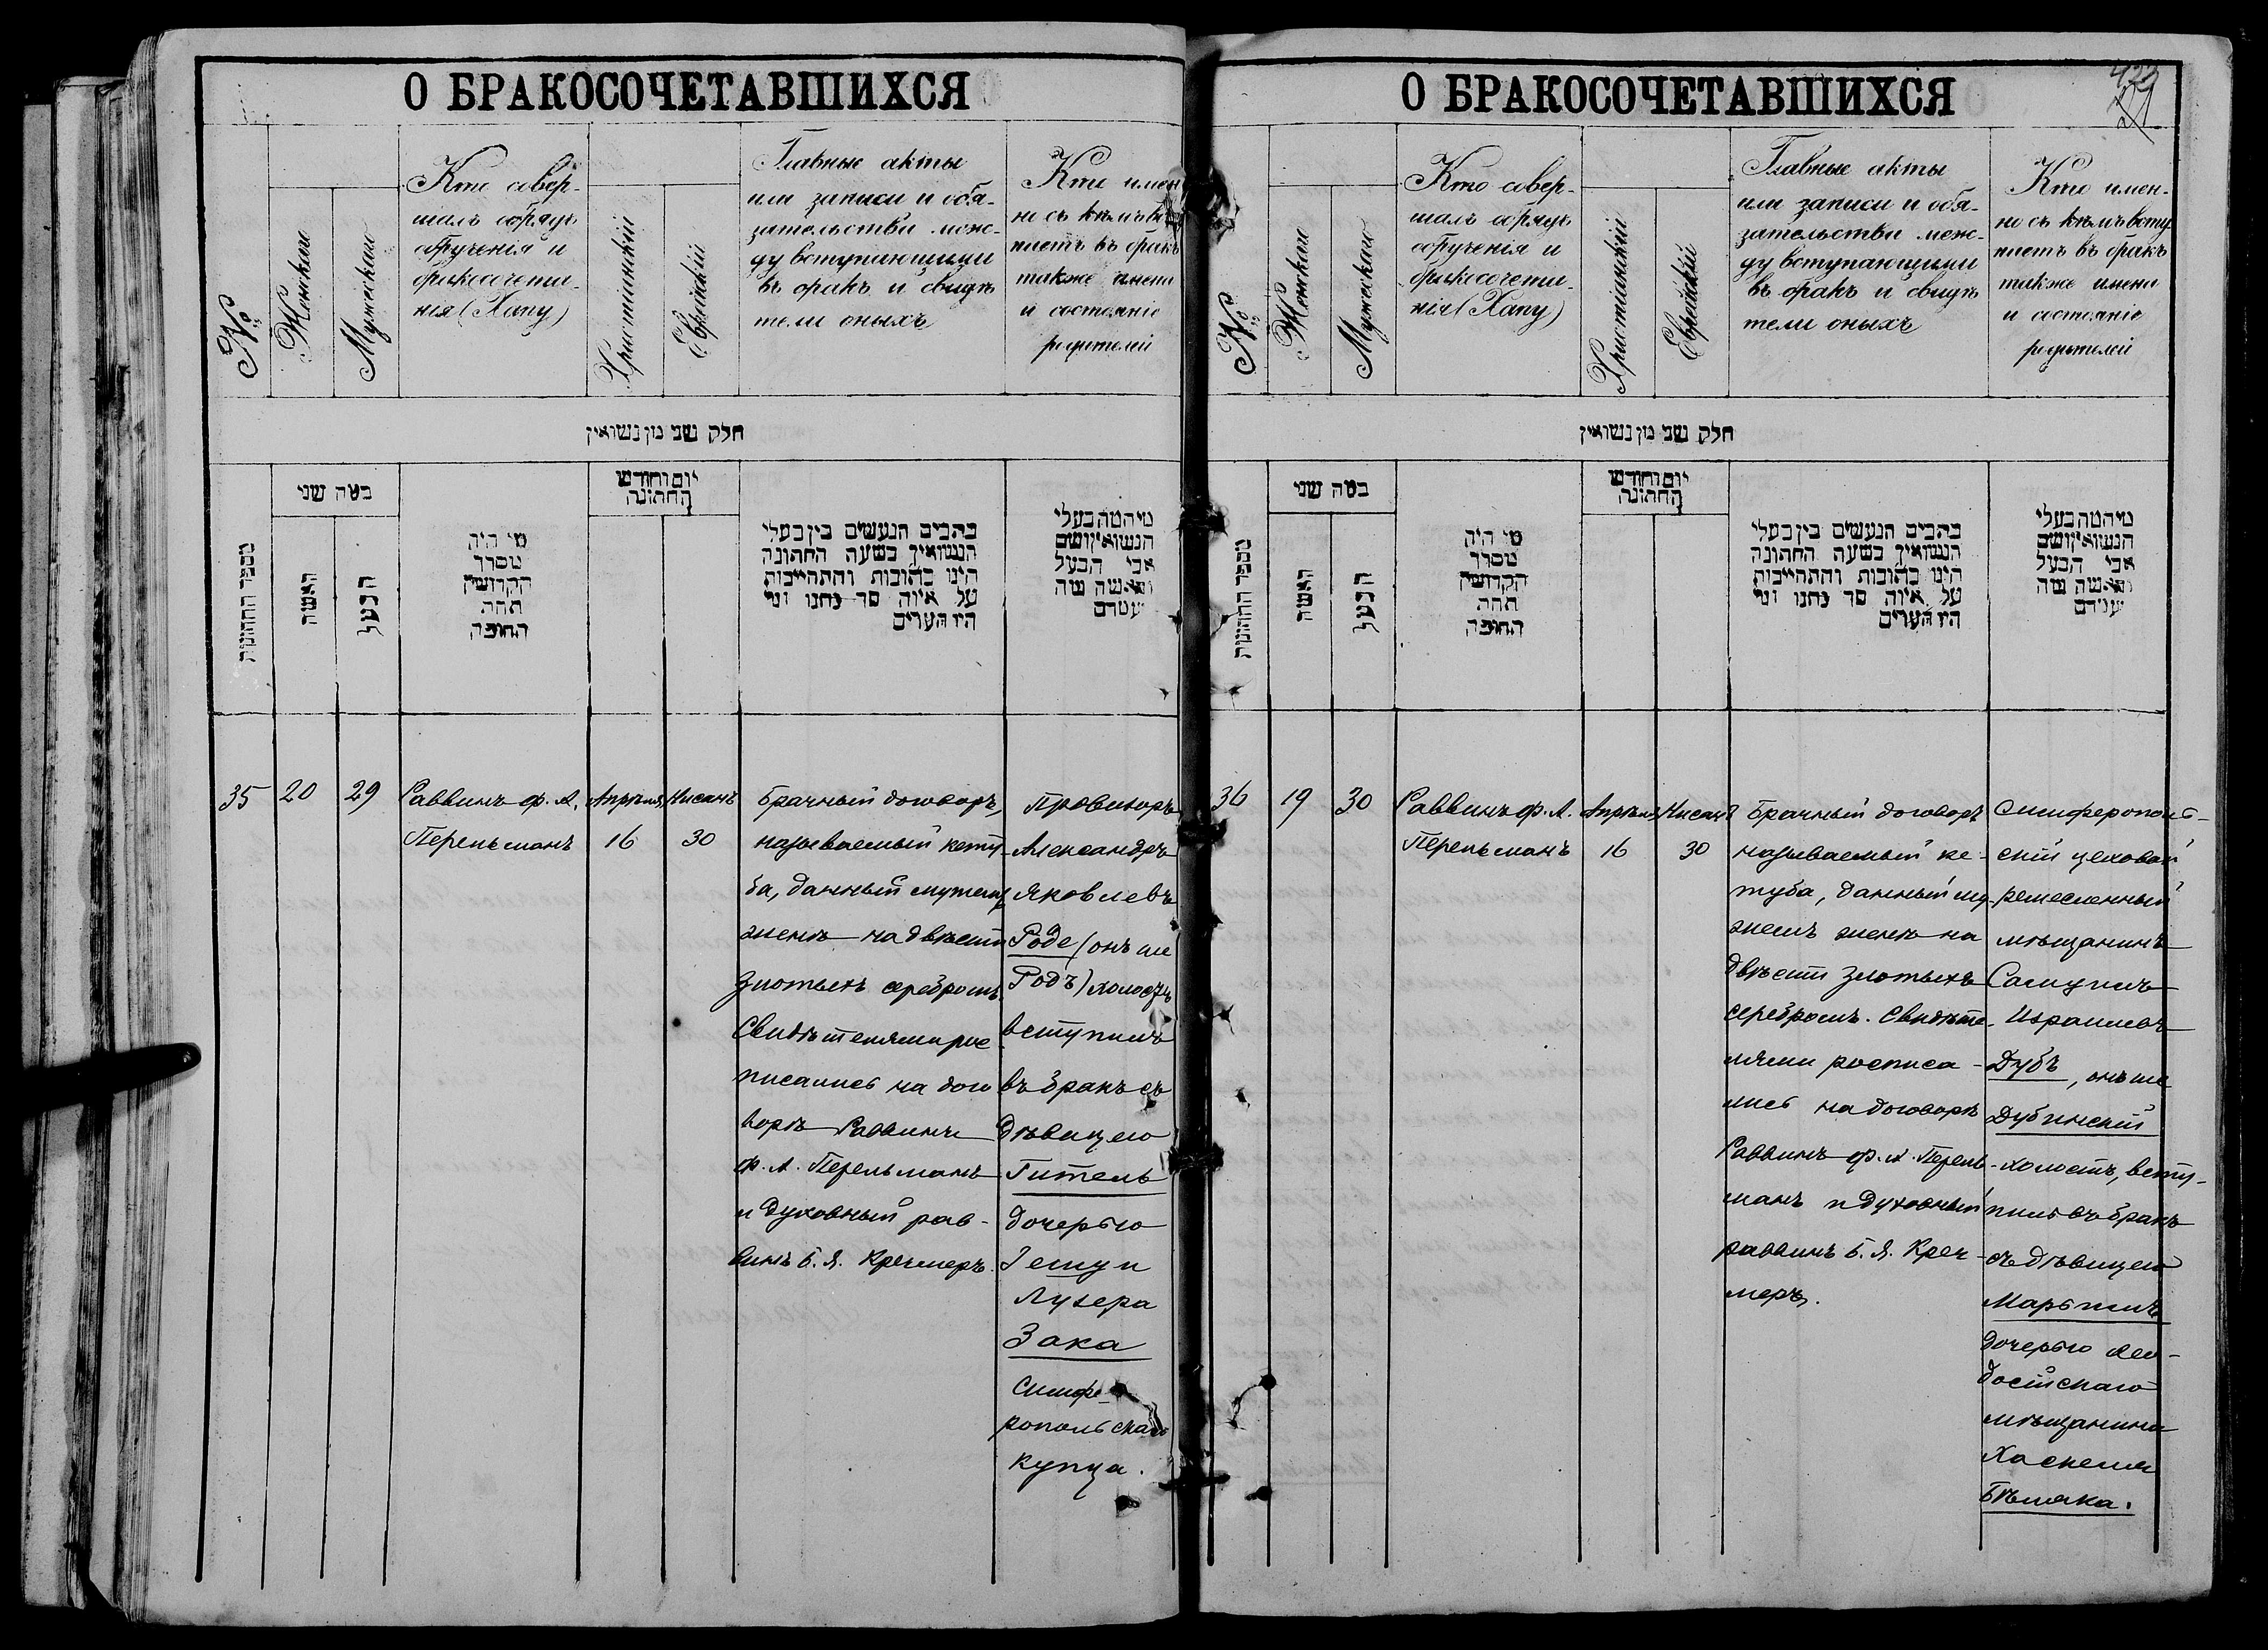 О БРАКОСОЧЕТАВШИХСЯ
№
Женскаго
Мужескаго
Кто совер-
шалъ обрядъ
обрученія и
бракосочета-
нія (Хапу)
Христіанскій
Еврейскій
Главные акты
или записи и обя-
зательства меж-
ду вступающими
въ бракъ и свидѣ
тели оныхъ
Кто имен
но съ кѣмъ всту
паетъ въ бракъ
также имена
и состояніе
родителей
חלק שני מן נשואין
מספר החתונות
כמה שני
האשה
הבעל
מי היה
מסדר
הקדושין
תחת
החופה
יום וחודש
החתונה
כתבים הנעשים בין בעלי
הנשואין בשעה החתונה
היינו כתובות והתחייבות
על איזה סך נתנו ומי
היו העדים
מי המה בעלי
הנשואין ושם
אבי הבעל
והאשה מה
35
20
29
Раввинъ ф. А.
Перельманъ
Апрѣля
16
Нисанъ
30
Брачный договоръ,
называемый кету-
ба, данный мужемъ
женѣ на двѣсти
злотыхъ серебромъ.
Свидѣтелями рос-
писались на дого
ворѣ Раввинъ
ф. А. Перельманъ
и духовный рав-
винъ Б. Я. Кречмеръ.
Провизоръ
Александръ
Яковлевъ
Роде (онъ же
Родъ) холостъ
вступилъ
въ бракъ съ
дѣвицею
Гитель
дочерью
Лузера
Зака
Симфе-
ропольскаго
купца.
О БРАКОСОЧЕТАВШИХСЯ
422
№
Женскаго
Мужескаго
Кто совер-
шалъ обрядъ
обрученія и
бракосочета-
нія (Хапу)
Христіанскій
Еврейскій
Главные акты
или записи и обя-
зательства меж-
ду вступающими
въ бракъ и свидѣ
тели оныхъ
Кто имен-
но съ кѣмъ всту
паетъ въ бракъ
также имена
и состояніе
родителей
חלק שני מן נשואין
מספר החתונות
כמה שני
האשה
הבעל
מי היה
מסדר
הקדושין
תחת
החופה
יום וחודש
החתונה
כתבים הנעשים בין בעלי
הנשואין בשעה החתונה
היינו כתובות והתחייבות
על איזה סך נתנו ומי
היו העדים
מי המה בעלי
הנשואין ושם
אבי הבעל
והאשה מה
36
19
30
Раввинъ ф. А.
Перельманъ
Апрѣля
16
Нисанъ
30
Брачный договоръ
называемый ке-
туба, данный му-
жемъ женѣ на
двѣсти злотыхъ
серебромъ. Свидѣте-
лями росписа-
лись на договорѣ
Раввинъ ф. А. Перель-
манъ и духовный
раввинъ Б. Я. Креч-
меръ.
Симферополь-
скій цеховой
ремесленный
мѣщанинъ
Самуилъ
Израилевъ
Дубъ, онъ же
Дубинскій
холостъ, всту-
пилъ въ бракъ
съ дѣвицею
дочерью Ѳео-
досійскаго
мѣщанина
Хаскеля
Бѣляка.